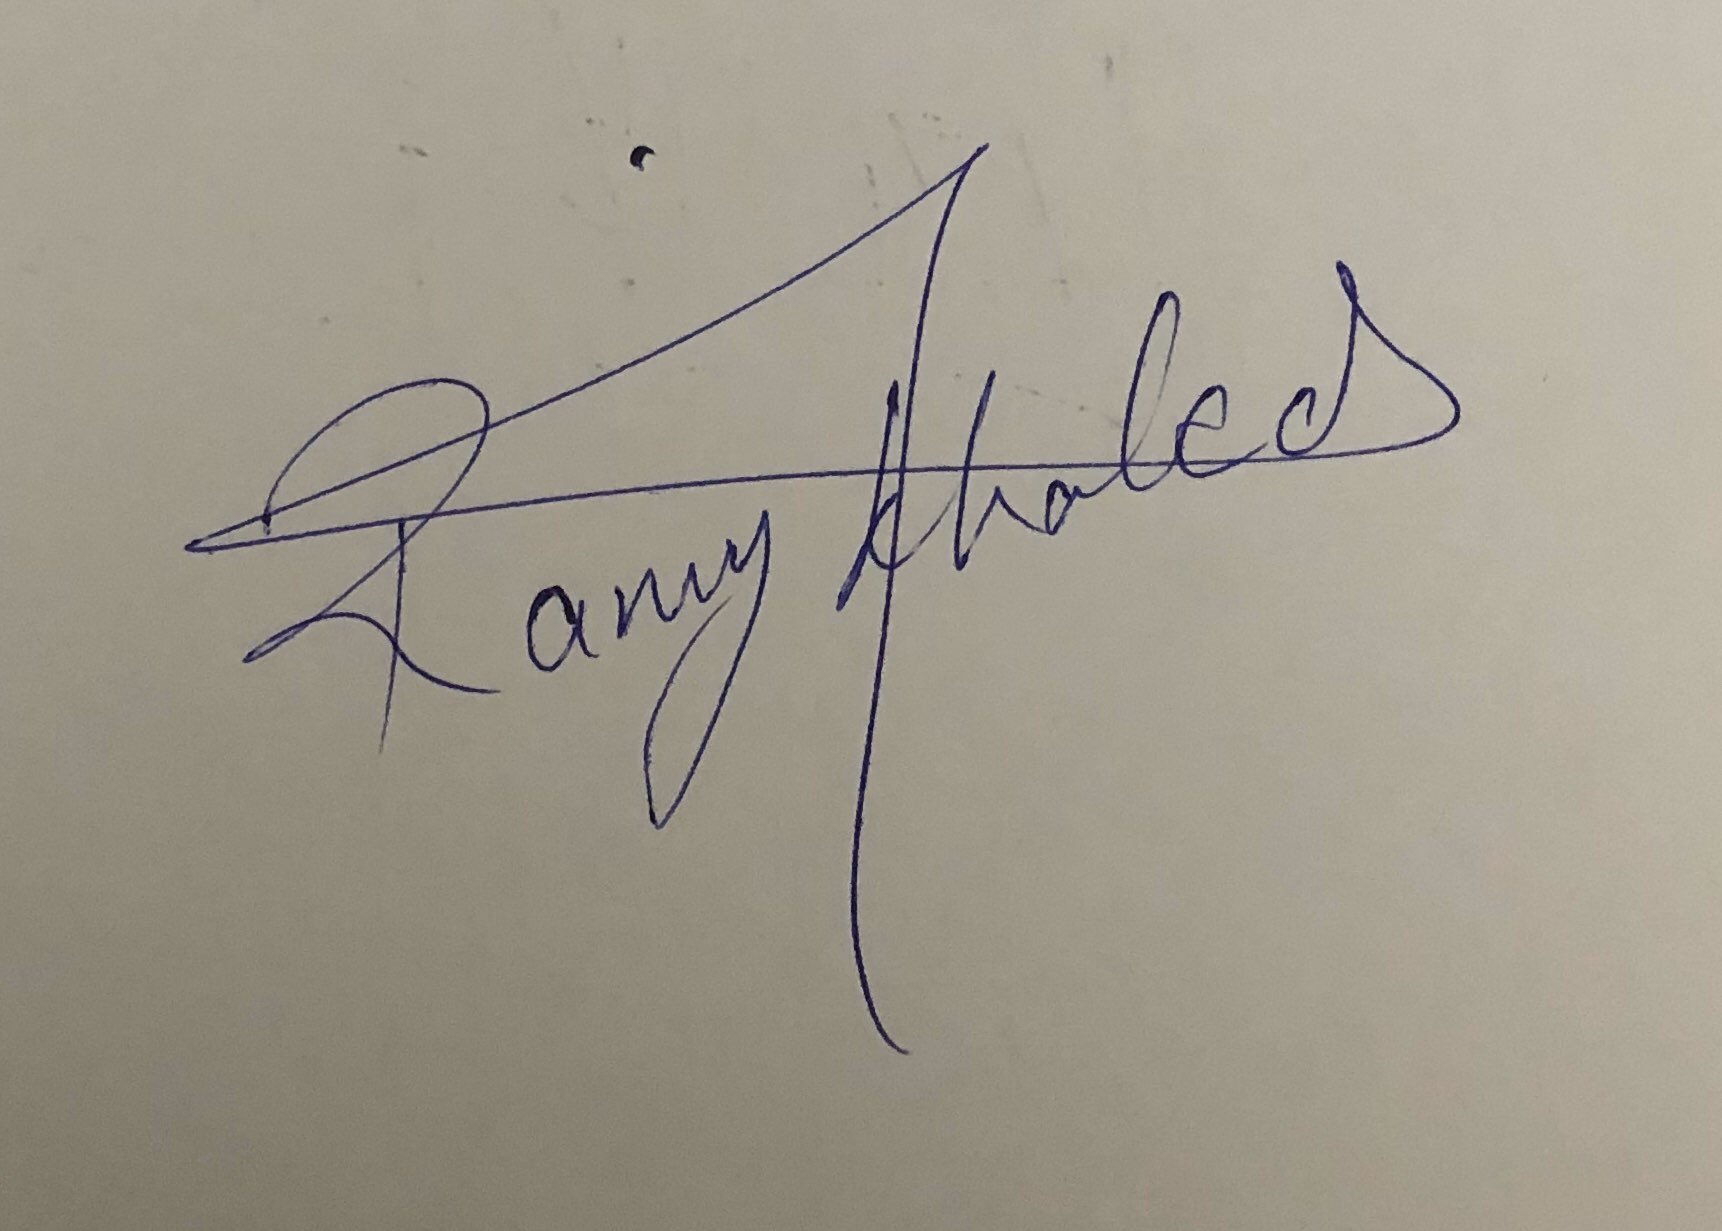 Ramy Khaled